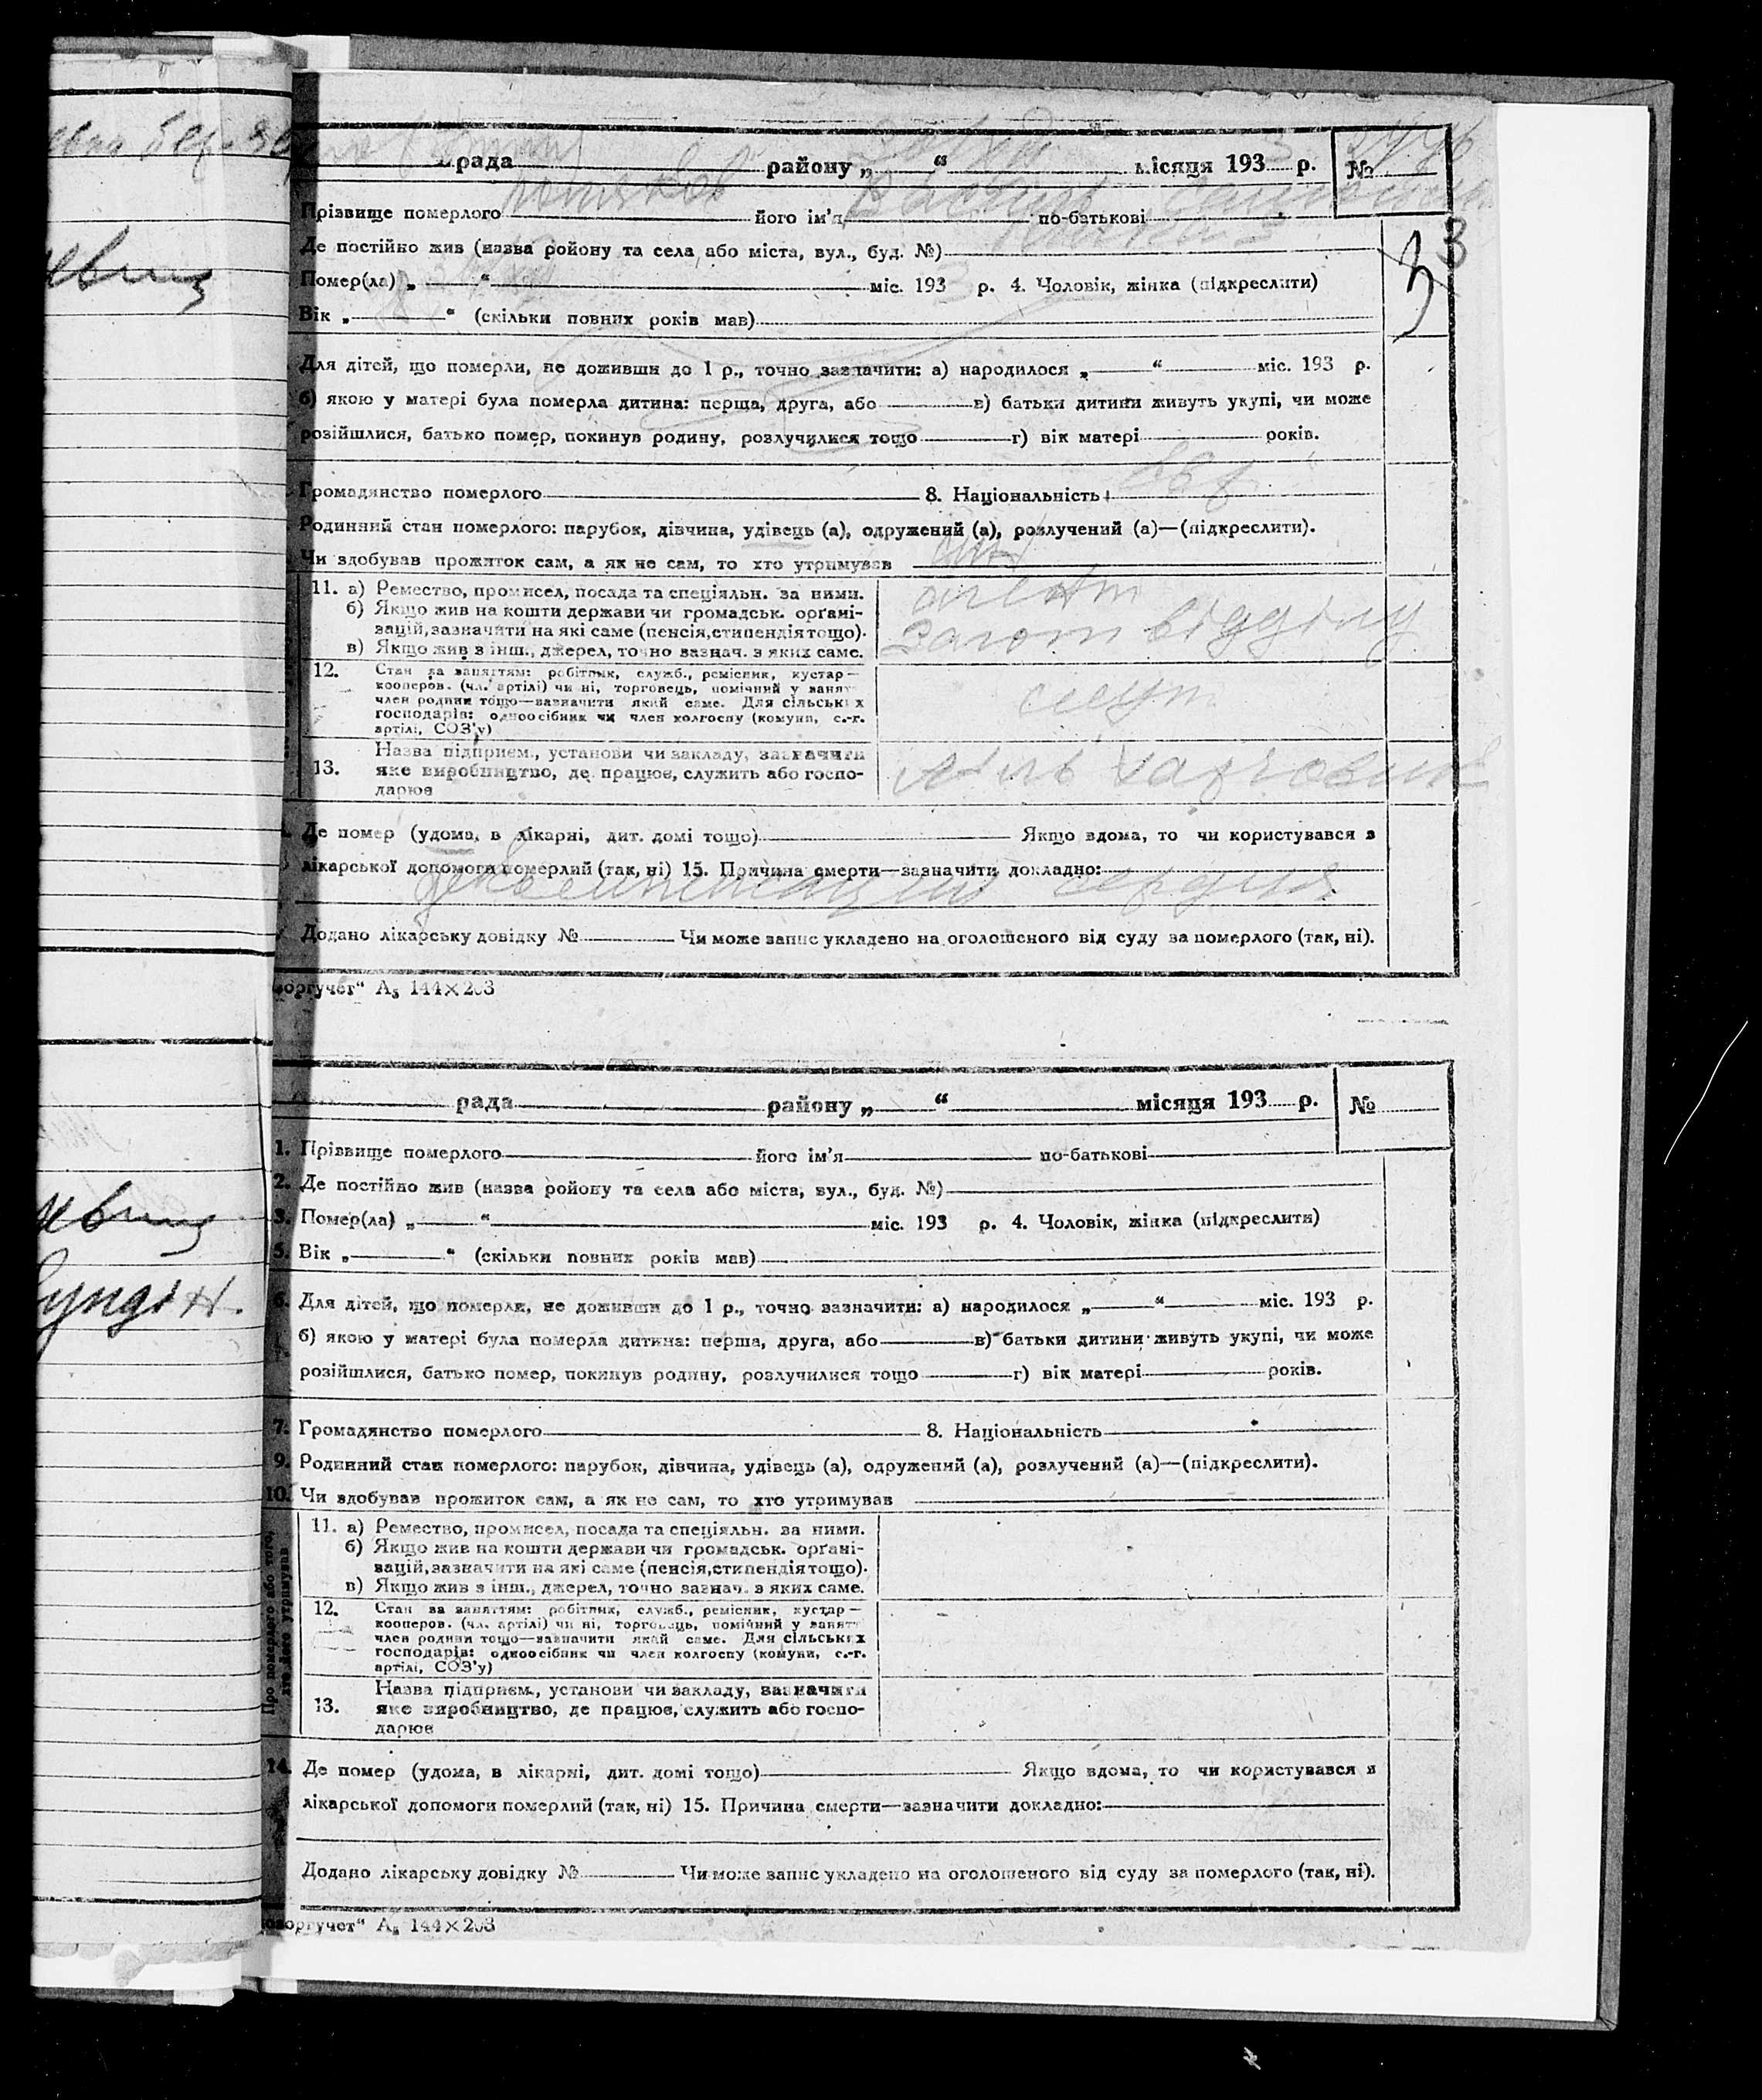 рада району „ “ місяця 193 3 р. №
Прізвище померлого його ім'я по-батькові
Де постійно жив (назва ройону та села або міста, вул., буд. №)
3
Помер(ла) „ “ міс. 193 3 р. 4. Чоловік, жінка (підкреслити)
Вік „ “ (скільки повних років мав)
Для дітей, що померли, не доживши до 1 р., точно зазначити: а) народилося „ “ міс. 193 р.
б) якою у матері була померла дитина: перша, друга, або в) батьки дитини живуть укупі, чи може
розійшлися, батько помер, покинув родину, розлучилися тощо г) вік матері років.
Громадянство померлого 8. Національність
Родинний стан померлого: парубок, дівчина, удівець (а), одружений (а), розлучений (а)—(підкреслити).
Чи здобував прожиток сам, а як не сам, то хто утримував сам
11. а) Ремество, промисел, посада та спеціяльн. за ними. агент
б) Якщо жив на кошти держави чи громадськ. орґані-
зацій, зазначити на які саме (пенсія, стипендія тощо). Загот відділу
в) Якщо жив з інш., джерел, точно зазнач. з яких саме.
12. Стан за заняттям: робітник, служб., ремісник, кустар—
кооперов. (чл. артілі) чи ні, торговець, помічний у занят
член родини тощо—зазначити який саме. Для сільських
господарів: одноосібник чи член колгоспу (комуни, с.-г.
артілі, СОЗ'у)
Назва підприєм., установи чи закладу, зазначити
13. яке виробництво, де працює, служить або госпо-
дарює
Де помер (удома, в лікарні, дит. домі тощо) Якщо вдома, то чи користувався з
лікарської допомоги померлий (так, ні) 15. Причина смерти—зазначити докладно:
сердця
Додано лікарську довідку № Чи може запис укладено на оголошеного від суду за померлого (так, ні).
оргучет“ А₅ 144×203
рада району „ “ місяця 193 р. №
1. Прізвище померлого його ім'я по-батькові
2. Де постійно жив (назва ройону та села або міста, вул., буд. №)
3. Помер(ла) „ “ міс. 193 р. 4. Чоловік, жінка (підкреслити)
5. Вік „ “ (скільки повних років мав)
6. Для дітей, що померли, не доживши до 1 р., точно зазначити: а) народилося „ “ міс. 193 р.
б) якою у матері була померла дитина: перша, друга, або в) батьки дитини живуть укупі, чи може
розійшлися, батько помер, покинув родину, розлучилися тощо г) вік матері років.
7. Громадянство померлого 8. Національність
9. Родинний стан померлого: парубок, дівчина, удівець (а), одружений (а), розлучений (а)—(підкреслити).
10. Чи здобував прожиток сам, а як не сам, то хто утримував
Про померлого або того,
хто його утримував
11. а) Ремество, промисел, посада та спеціяльн. за ними.
б) Якщо жив на кошти держави чи громадськ. орґані-
зацій, зазначити на які саме (пенсія, стипендія тощо).
в) Якщо жив з інш., джерел, точно зазнач. з яких саме.
12. Стан за заняттям: робітник, служб., ремісник, кустар—
кооперов. (чл. артілі) чи ні, торговець, помічний у занят
член родини тощо—зазначити який саме. Для сільських
господарів: одноосібник чи член колгоспу (комуни, с.-г.
артілі, СОЗ'у)
Назва підприєм., установи чи закладу, зазначити
13. яке виробництво, де працює, служить або госпо-
дарює
14. Де помер (удома, в лікарні, дит. домі тощо) Якщо вдома, то чи користувався з
лікарської допомоги померлий (так, ні) 15. Причина смерти—зазначити докладно:
Додано лікарську довідку № Чи може запис укладено на оголошеного від суду за померлого (так, ні).
оргучет“ А₅ 144×203